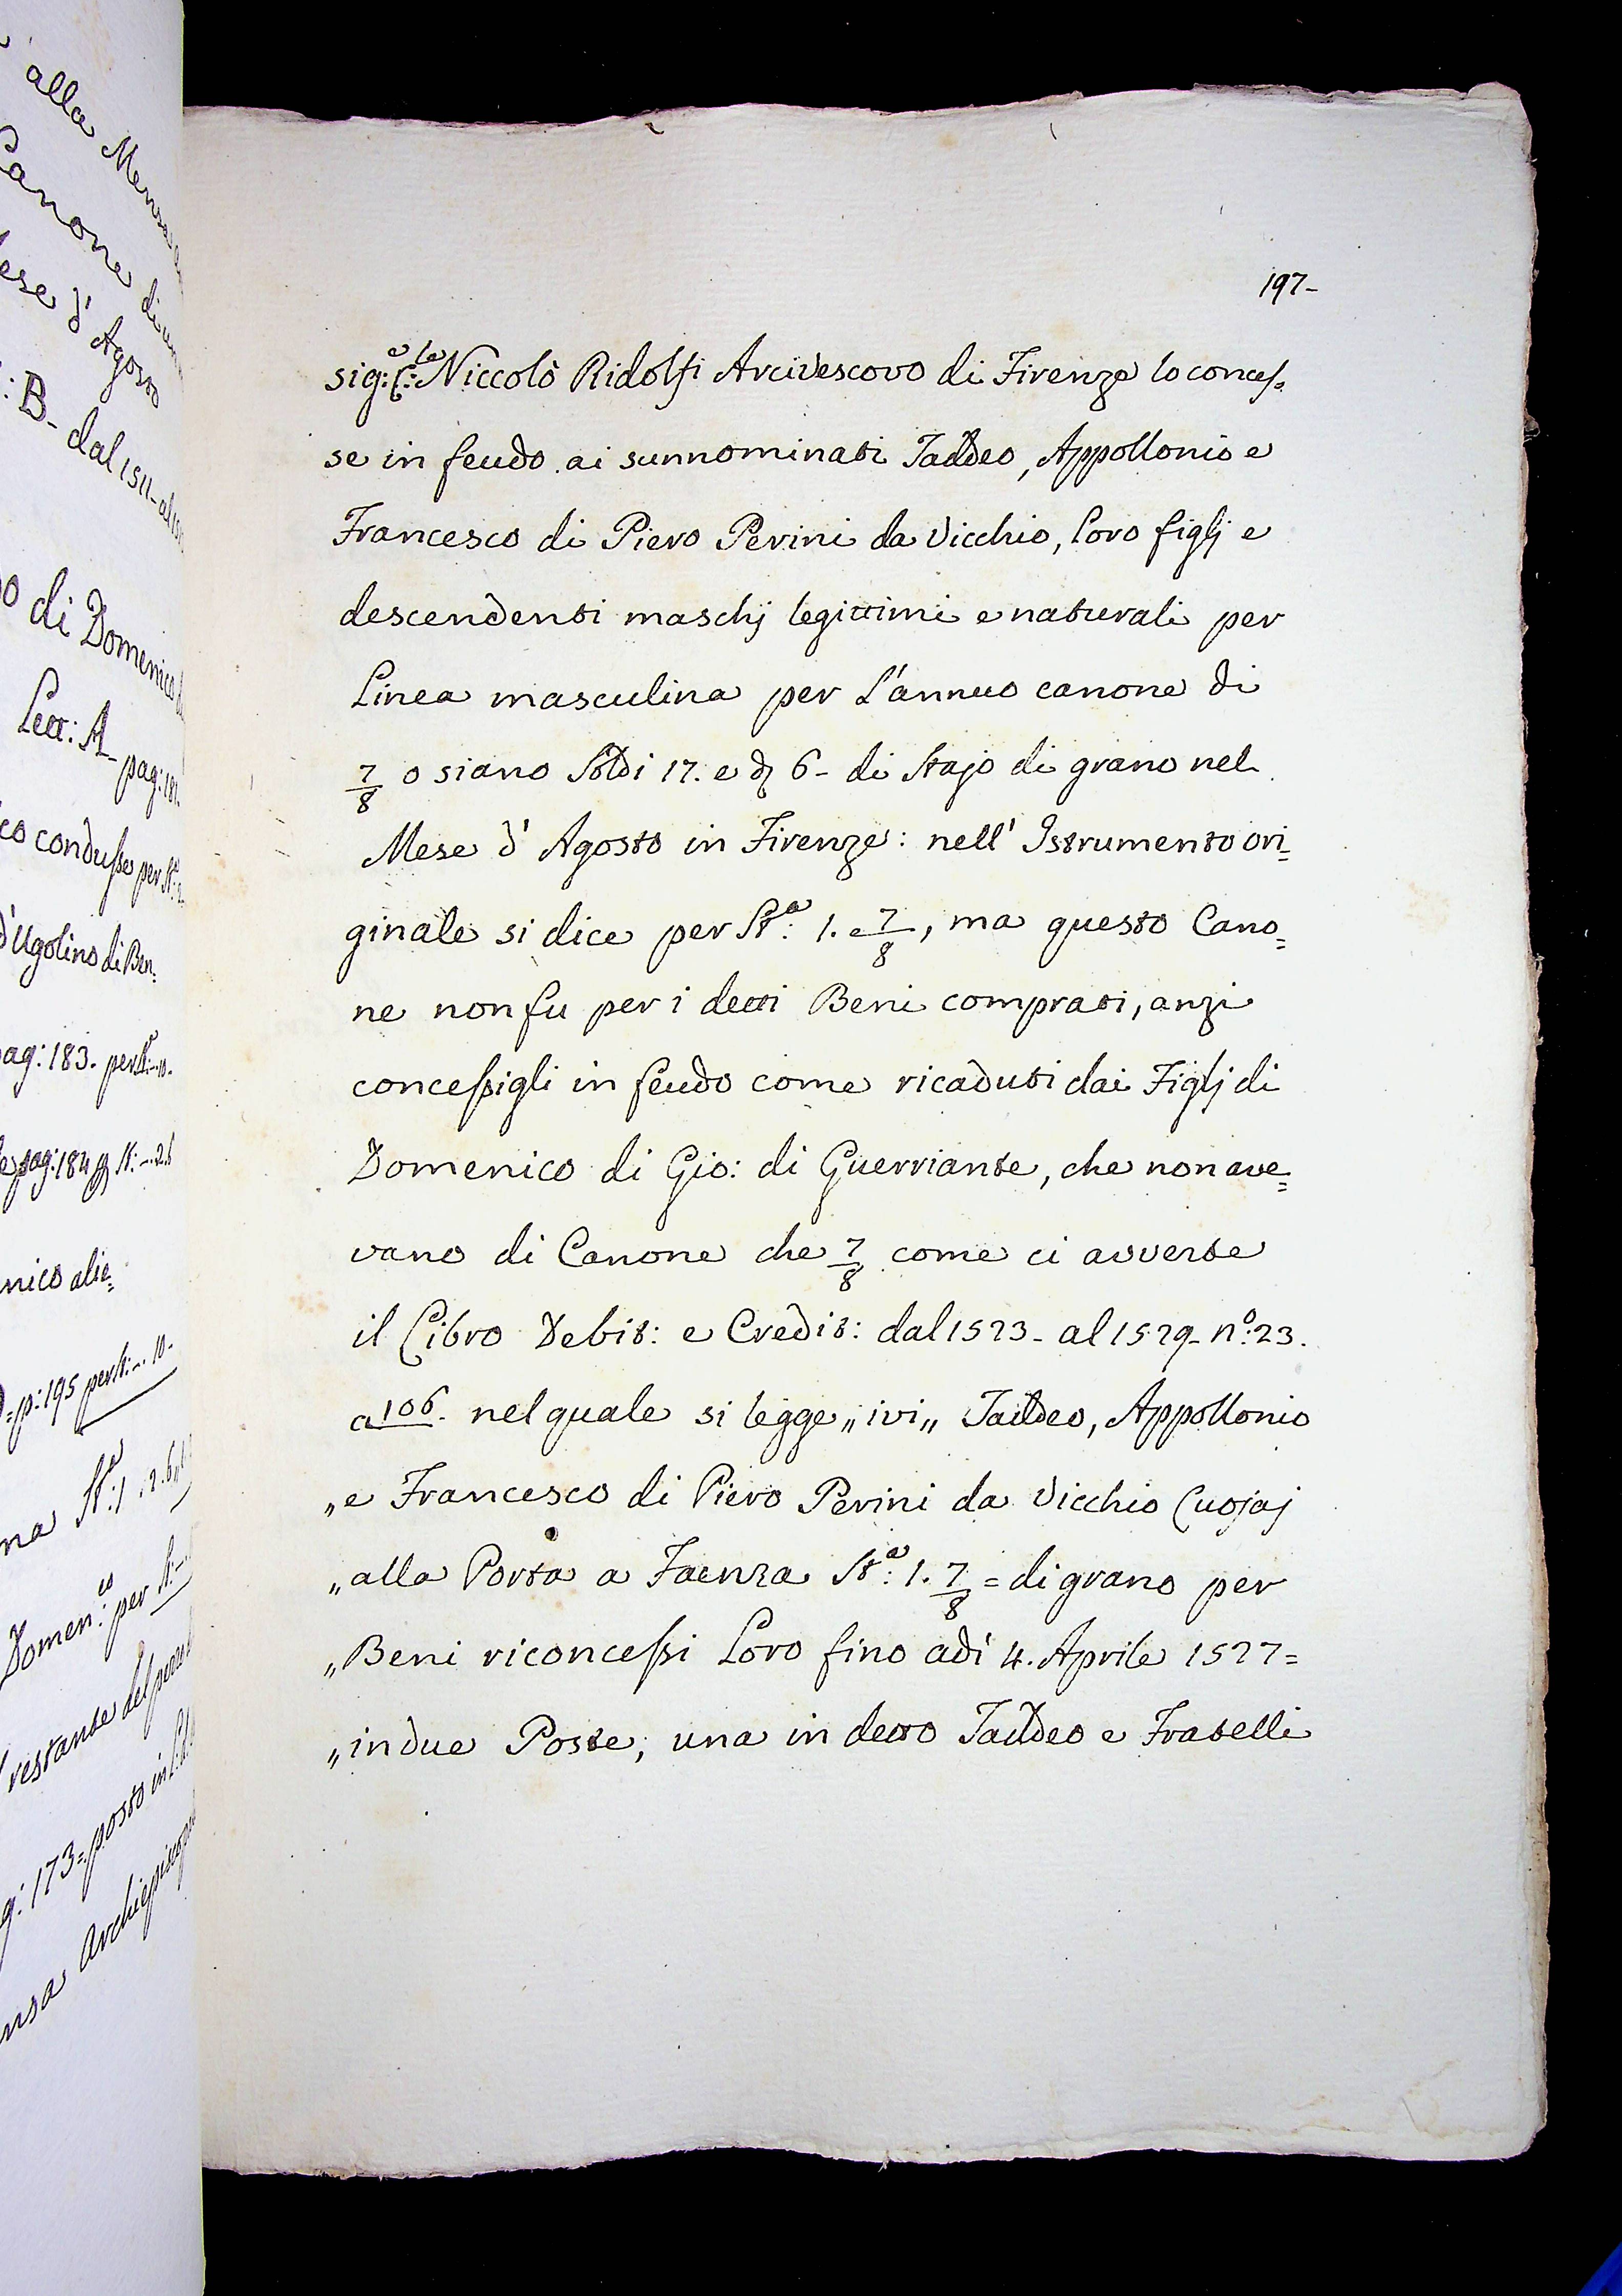 197-
sig:e C:le Niccolò Ridolfi Arcivescovo di Firenze lo conces=
se in feudo ai sunnominati Taddeo, Appollonio e
Francesco di Piero Perini da Vicchio, loro figlj e
descendenti maschj legittimi e naturali per
Linea masculina per L'annuo canone di
7/8 o siano Soldi 17. e d 6- di Stajo di grano nel
Mese d'Agosto in Firenze: nell'Istrumento ori=
ginale si dice per Sta: 1. e 7/8, ma questo Cano=
ne non fu per i detti Beni comprati, anzi
concessigli in feudo come ricaduti dai Figlj di
Domenico di Gio: di Guerriante, che non ave=
vano di Canone che 7/8 come ci avverte
il Libro Debit: e Credit: dal 1523- al 1529- no: 23.
a 106. nel quale si legge „ivi„ Taddeo, Appollonio
„e Francesco di Piero Perini da Vicchio Cuojaj
„alla Porta a Faenza Sta: 1. 7/8 = di grano per
„Beni riconcessi Loro fino adì 4. Aprile 1527=
„in due Poste; una in detto Taddeo e Fratelli
alla Mensa
Canone di
d'Agosto
B- dal 1511- al
di Domenico
Lett: A- pag: 181.
condusse per
d'Ugolino di Ben:
pag: 183. per
pag: 184
alie=
p: 195 per St: -. 10-
Domen:co per St:
restante del
173= posto in
Archiepiscop